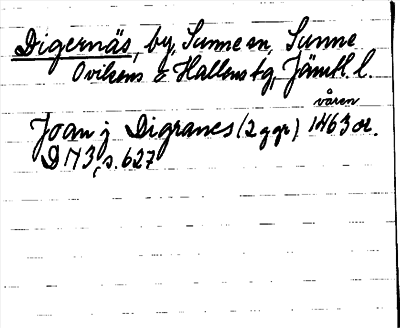 Digernäs, by, Sunne sn, Sunne
Ovikens & Hallens tg, Jämtl. l.
våren
Joan j Digranes (2 ggr) 1463 or.
D 113, s. 627